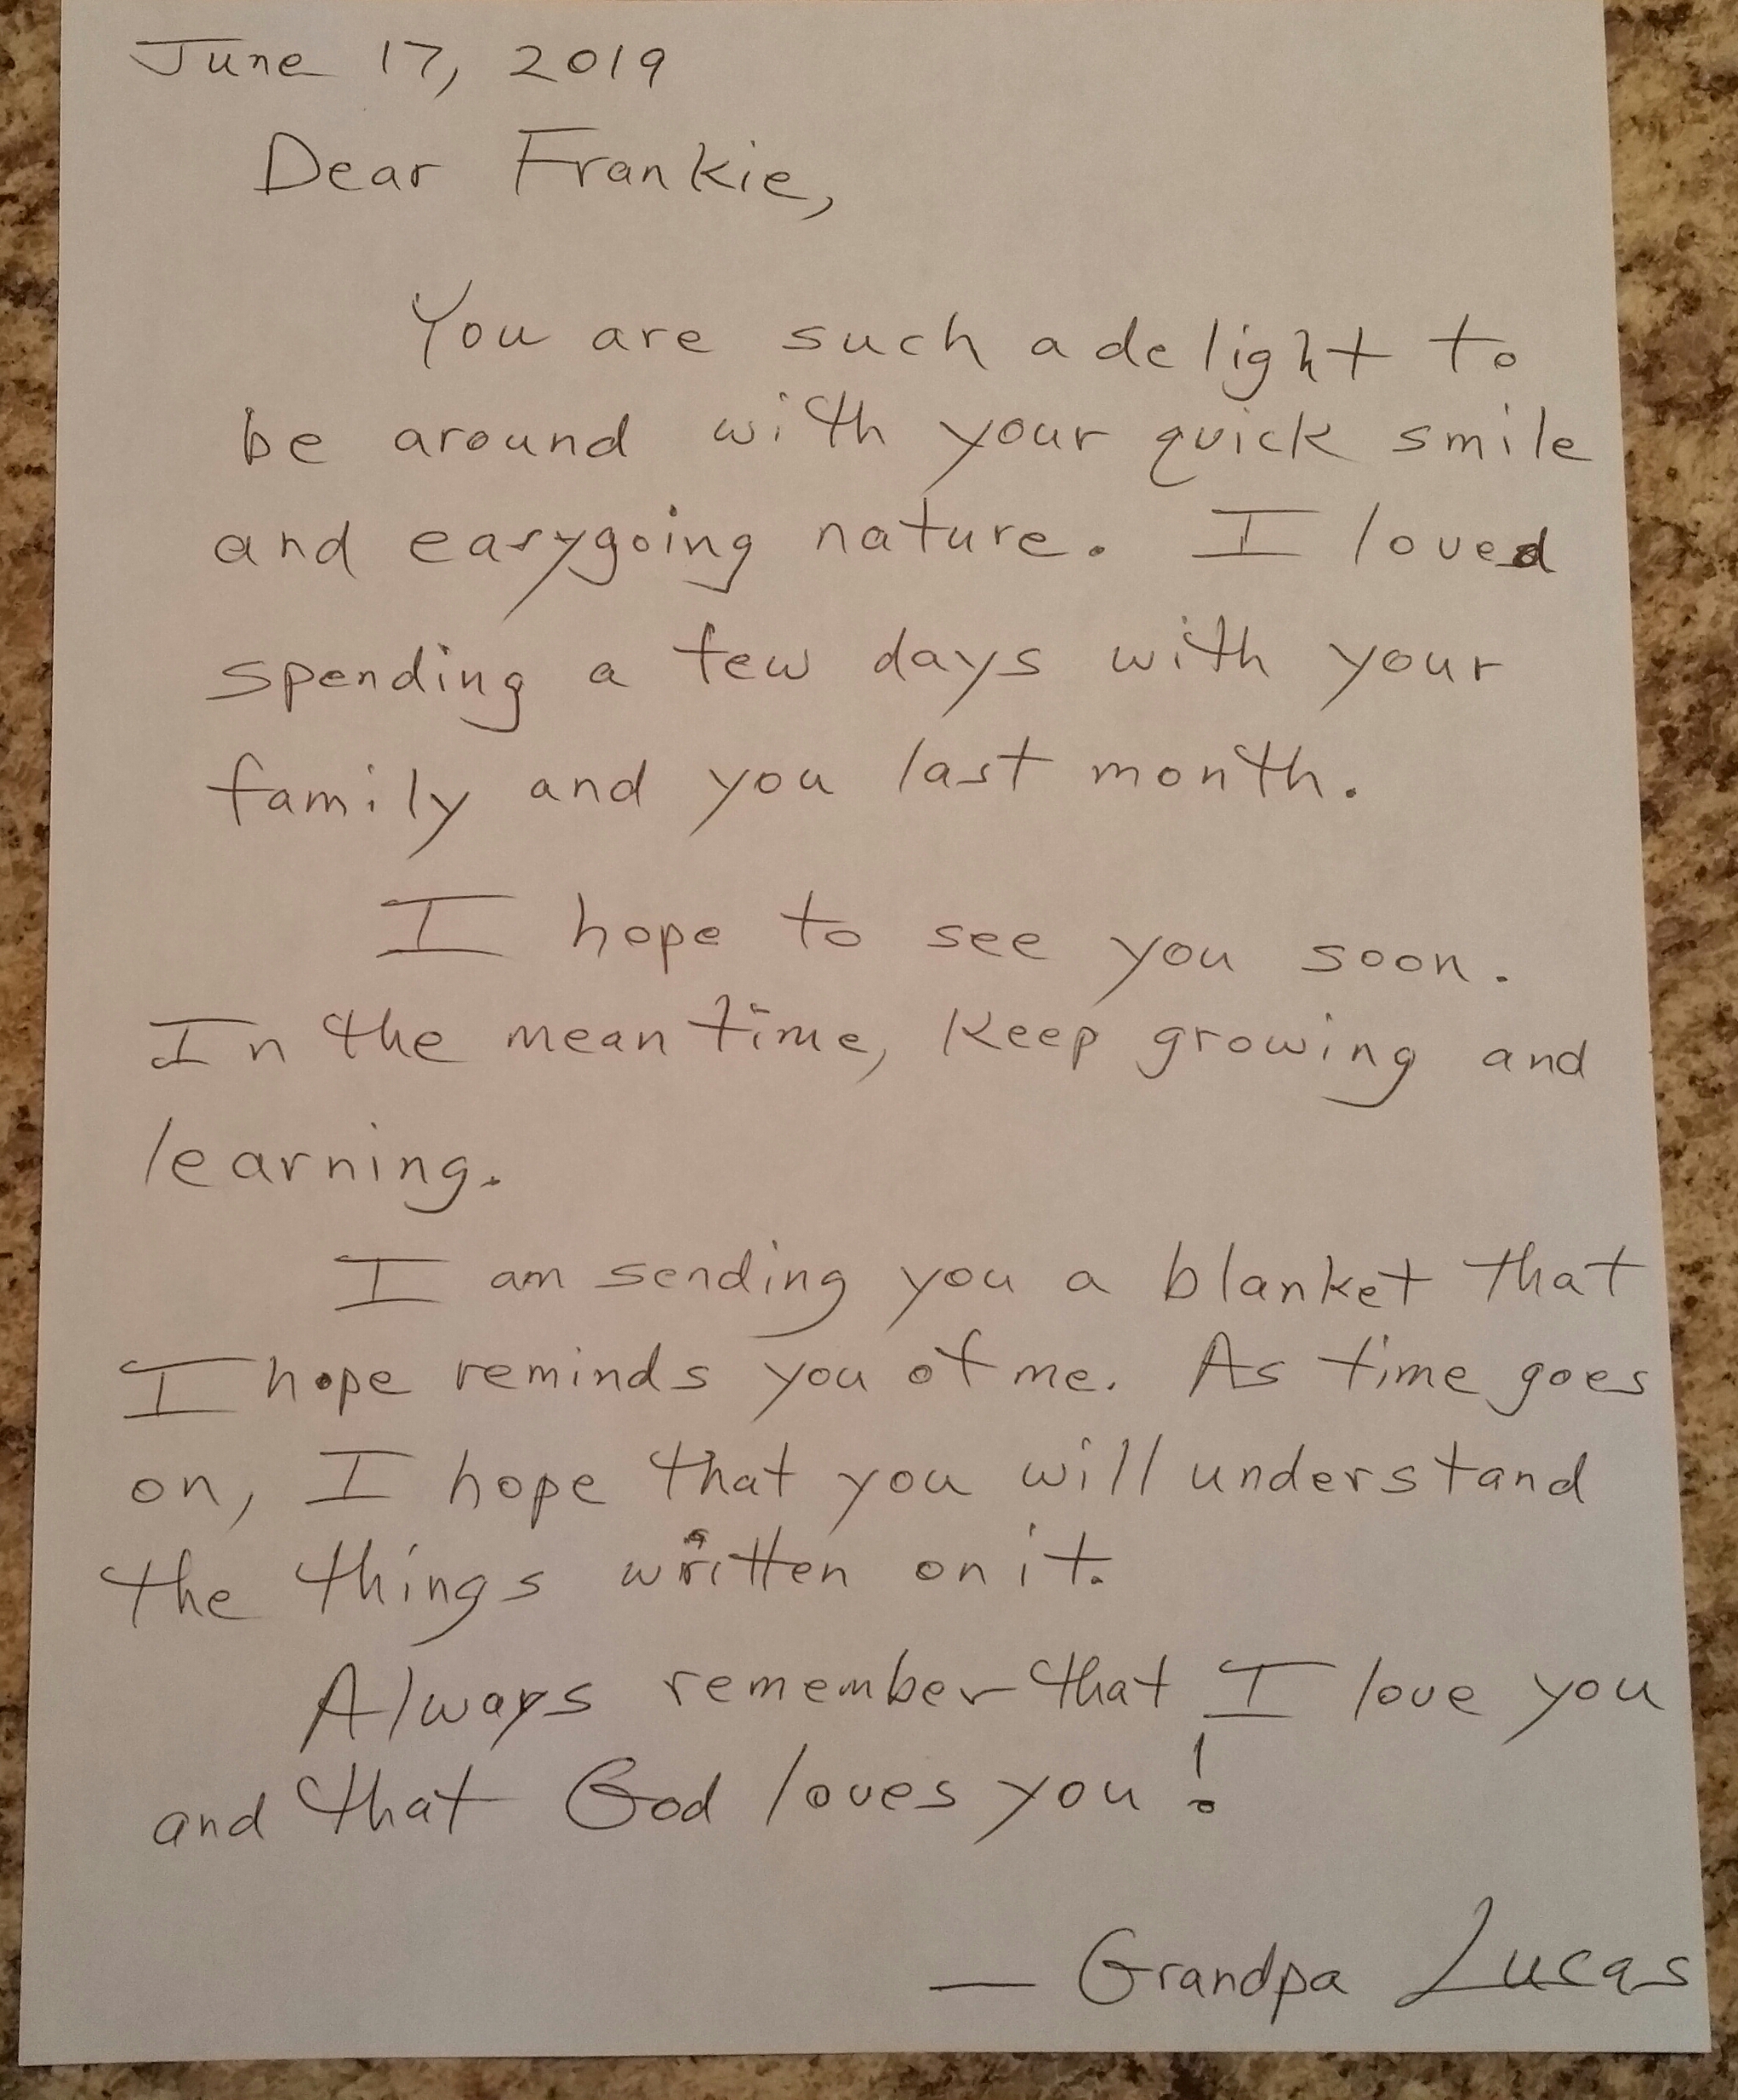 June 17, 2019
Dear Frankie,
You are such a delight to
be around with your quick smile
and easygoing nature. I loved
spending a few days with your
family and you last month.
I hope to see you soon.
In the mean time, keep growing and
learning.
I am sending you a blanket that
I hope reminds you of me. As time goes
on, I hope that you will understand
the things written on it.
Always remember that I love you
and that God loves you!
— Grandpa Lucas